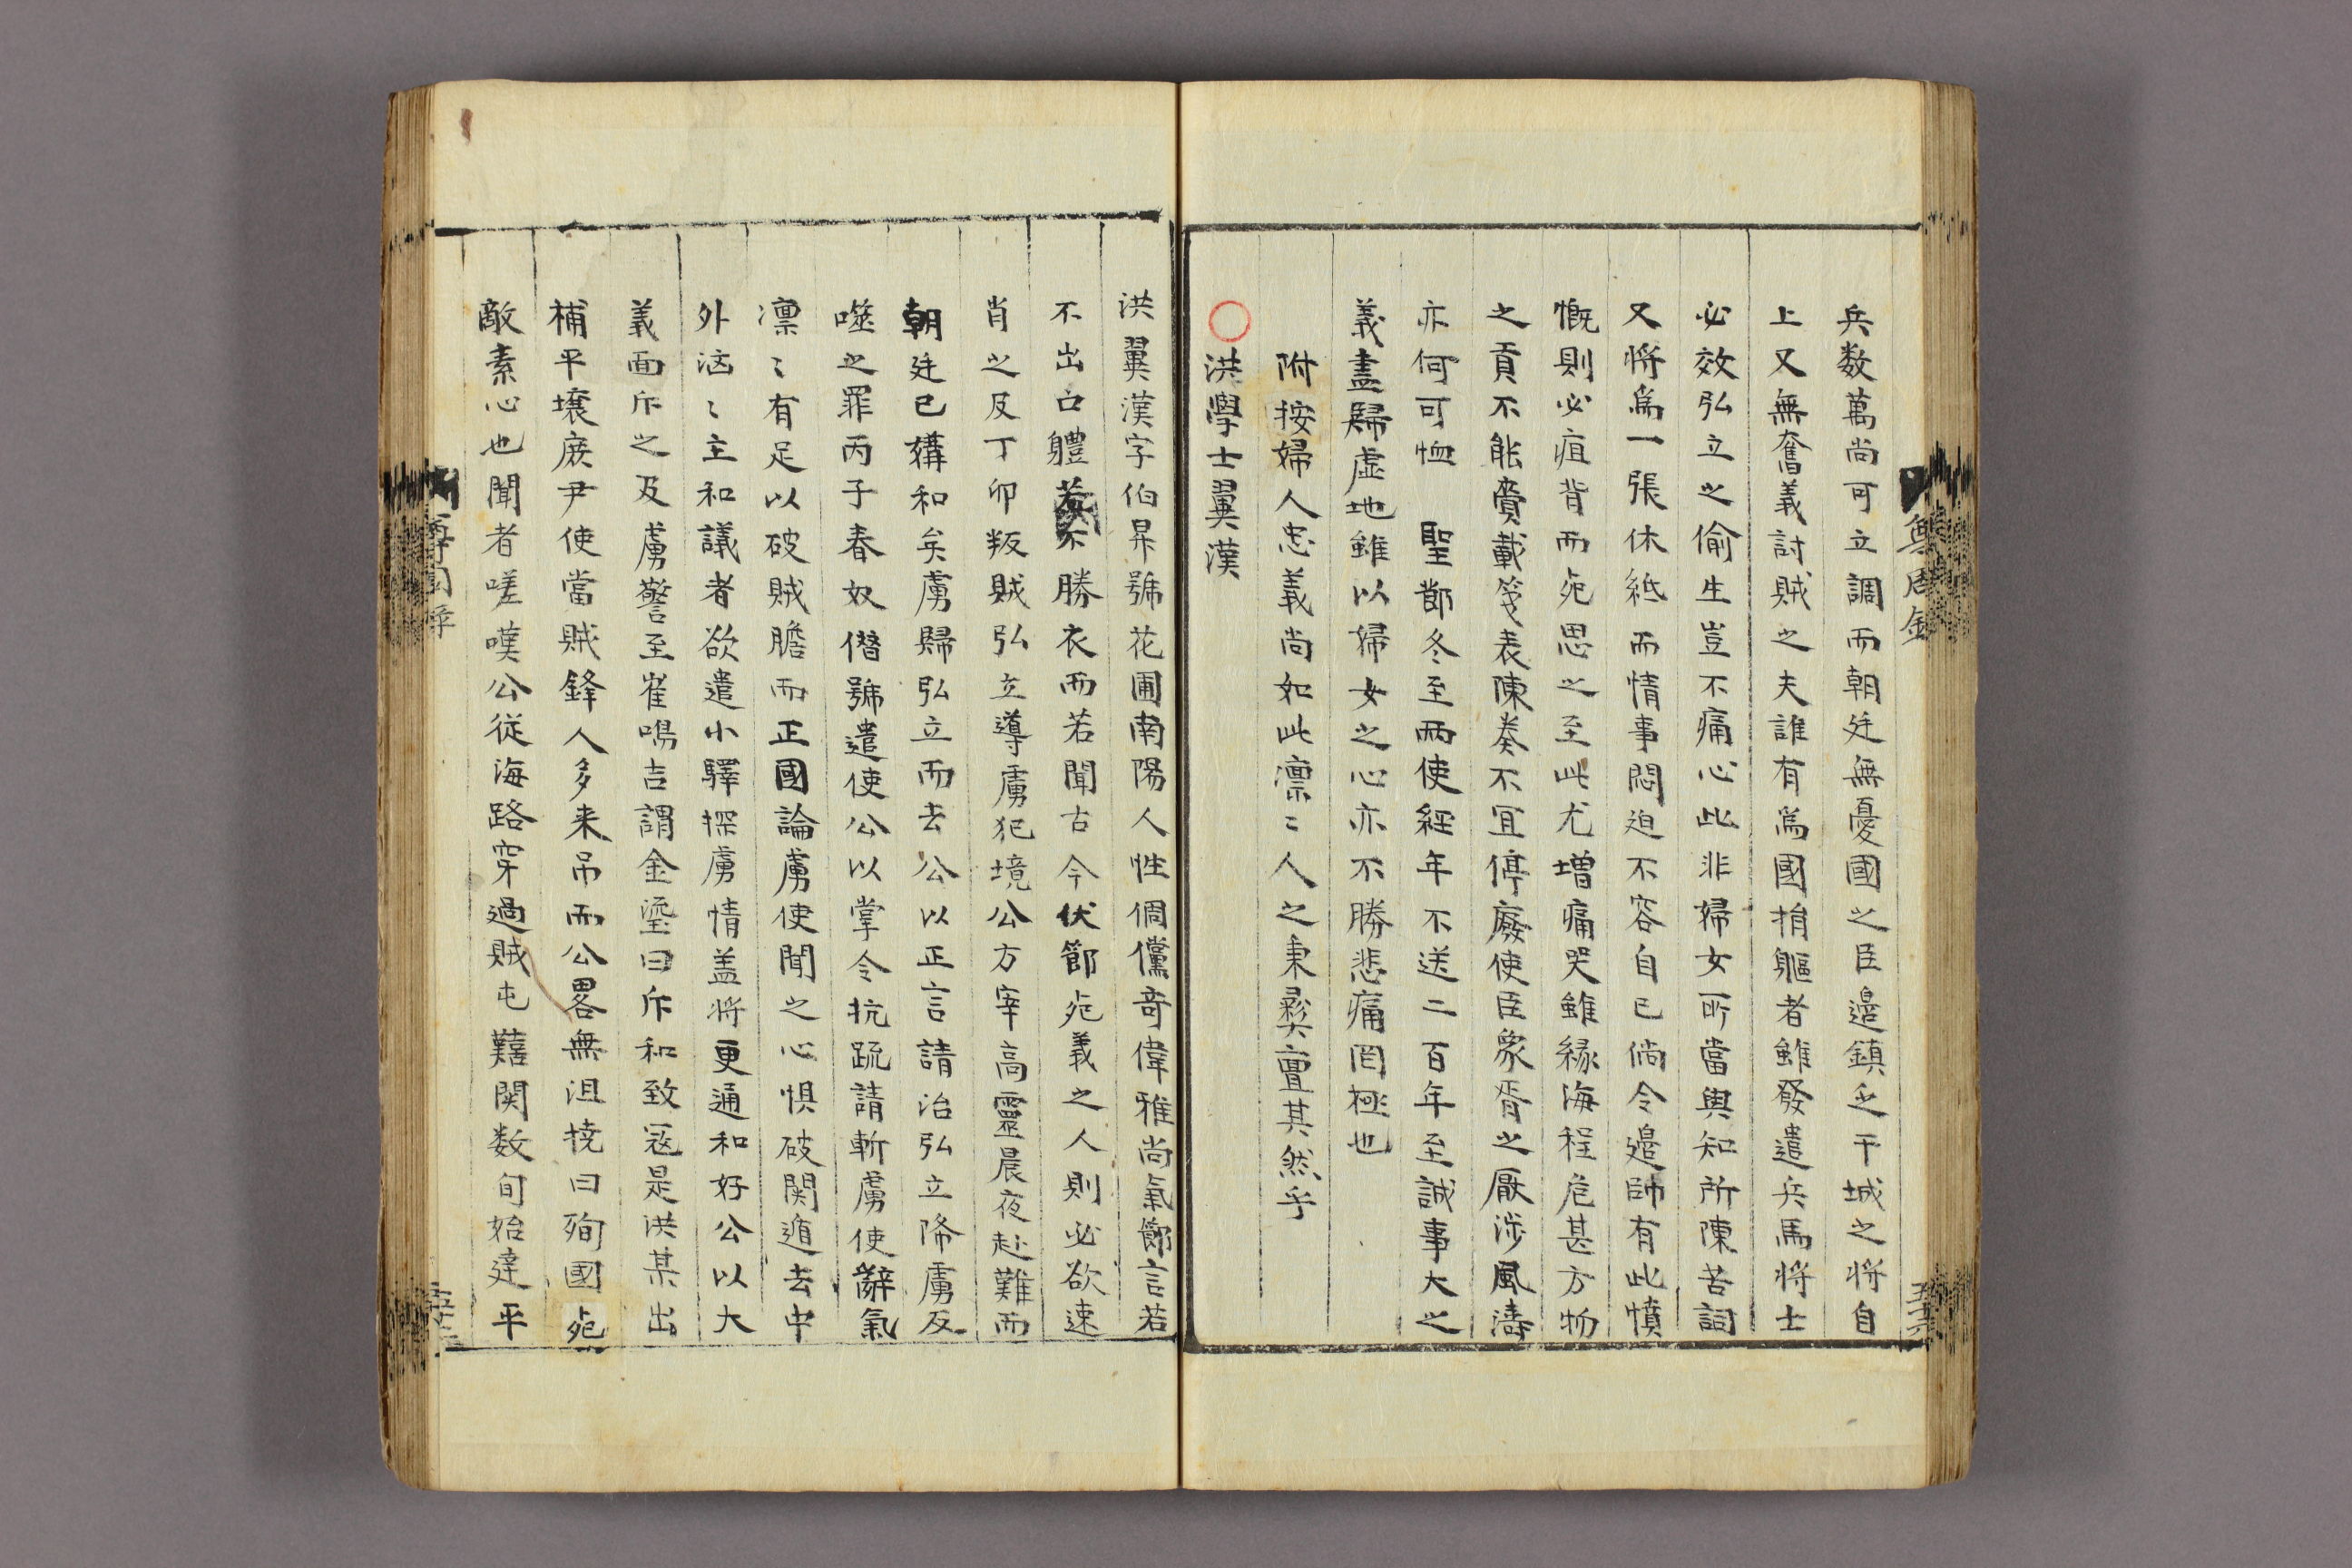 兵数萬尚可立調而朝廷無憂國之臣邉鎮乏干城之将自
上又無奮義討賊之夫誰有為國捐軀者雖發遣兵馬将士
必效弘立之偷生豈不痛心此非婦女所當與知所陳苦詞
又将為一張休紙而情事悶迫不容自已倘令邉帥有此憤
慨則必疽背而死思之至此尤增痛哭雖緣海程危甚方物
之貢不能賫載箋表陳奏不宜停廢使臣象胥之厭涉風濤
亦何可恤 聖節冬至兩使經年不送二百年至誠事大之
義盡歸虛地雖以婦女之心亦不勝悲痛罔極也
附按婦人忠義尚如此凛〻人之秉彛亶其然乎
○洪學士翼漢
洪翼漢字伯昇號花圃南陽人性倜儻奇偉雅尚氣節言若
不出口軆若不勝衣而若聞古今伏節死義之人則必欲速
肖之及丁卯叛賊弘立導虜犯境公方宰高靈晨夜赴難而
朝廷已媾和矣虜歸弘立而去公以正言請治弘立降虜反
噬之罪丙子春奴僭號遣使公以掌令抗疏請斬虜使辭氣
凛〻有足以破賊膽而正國論虜使聞之心惧破関遁去中
外洶〻主和議者欲遣小驛探虜情盖将更通和好公以大
義面斥之及虜警至崔鳴吉謂金瑬曰斥和致寇是洪某出
補平壤庶尹使當賊鋒人多来吊而公畧無沮撓曰殉國死
敵素心也聞者嗟嘆公従海路穿過賊屯艱関数旬始達平